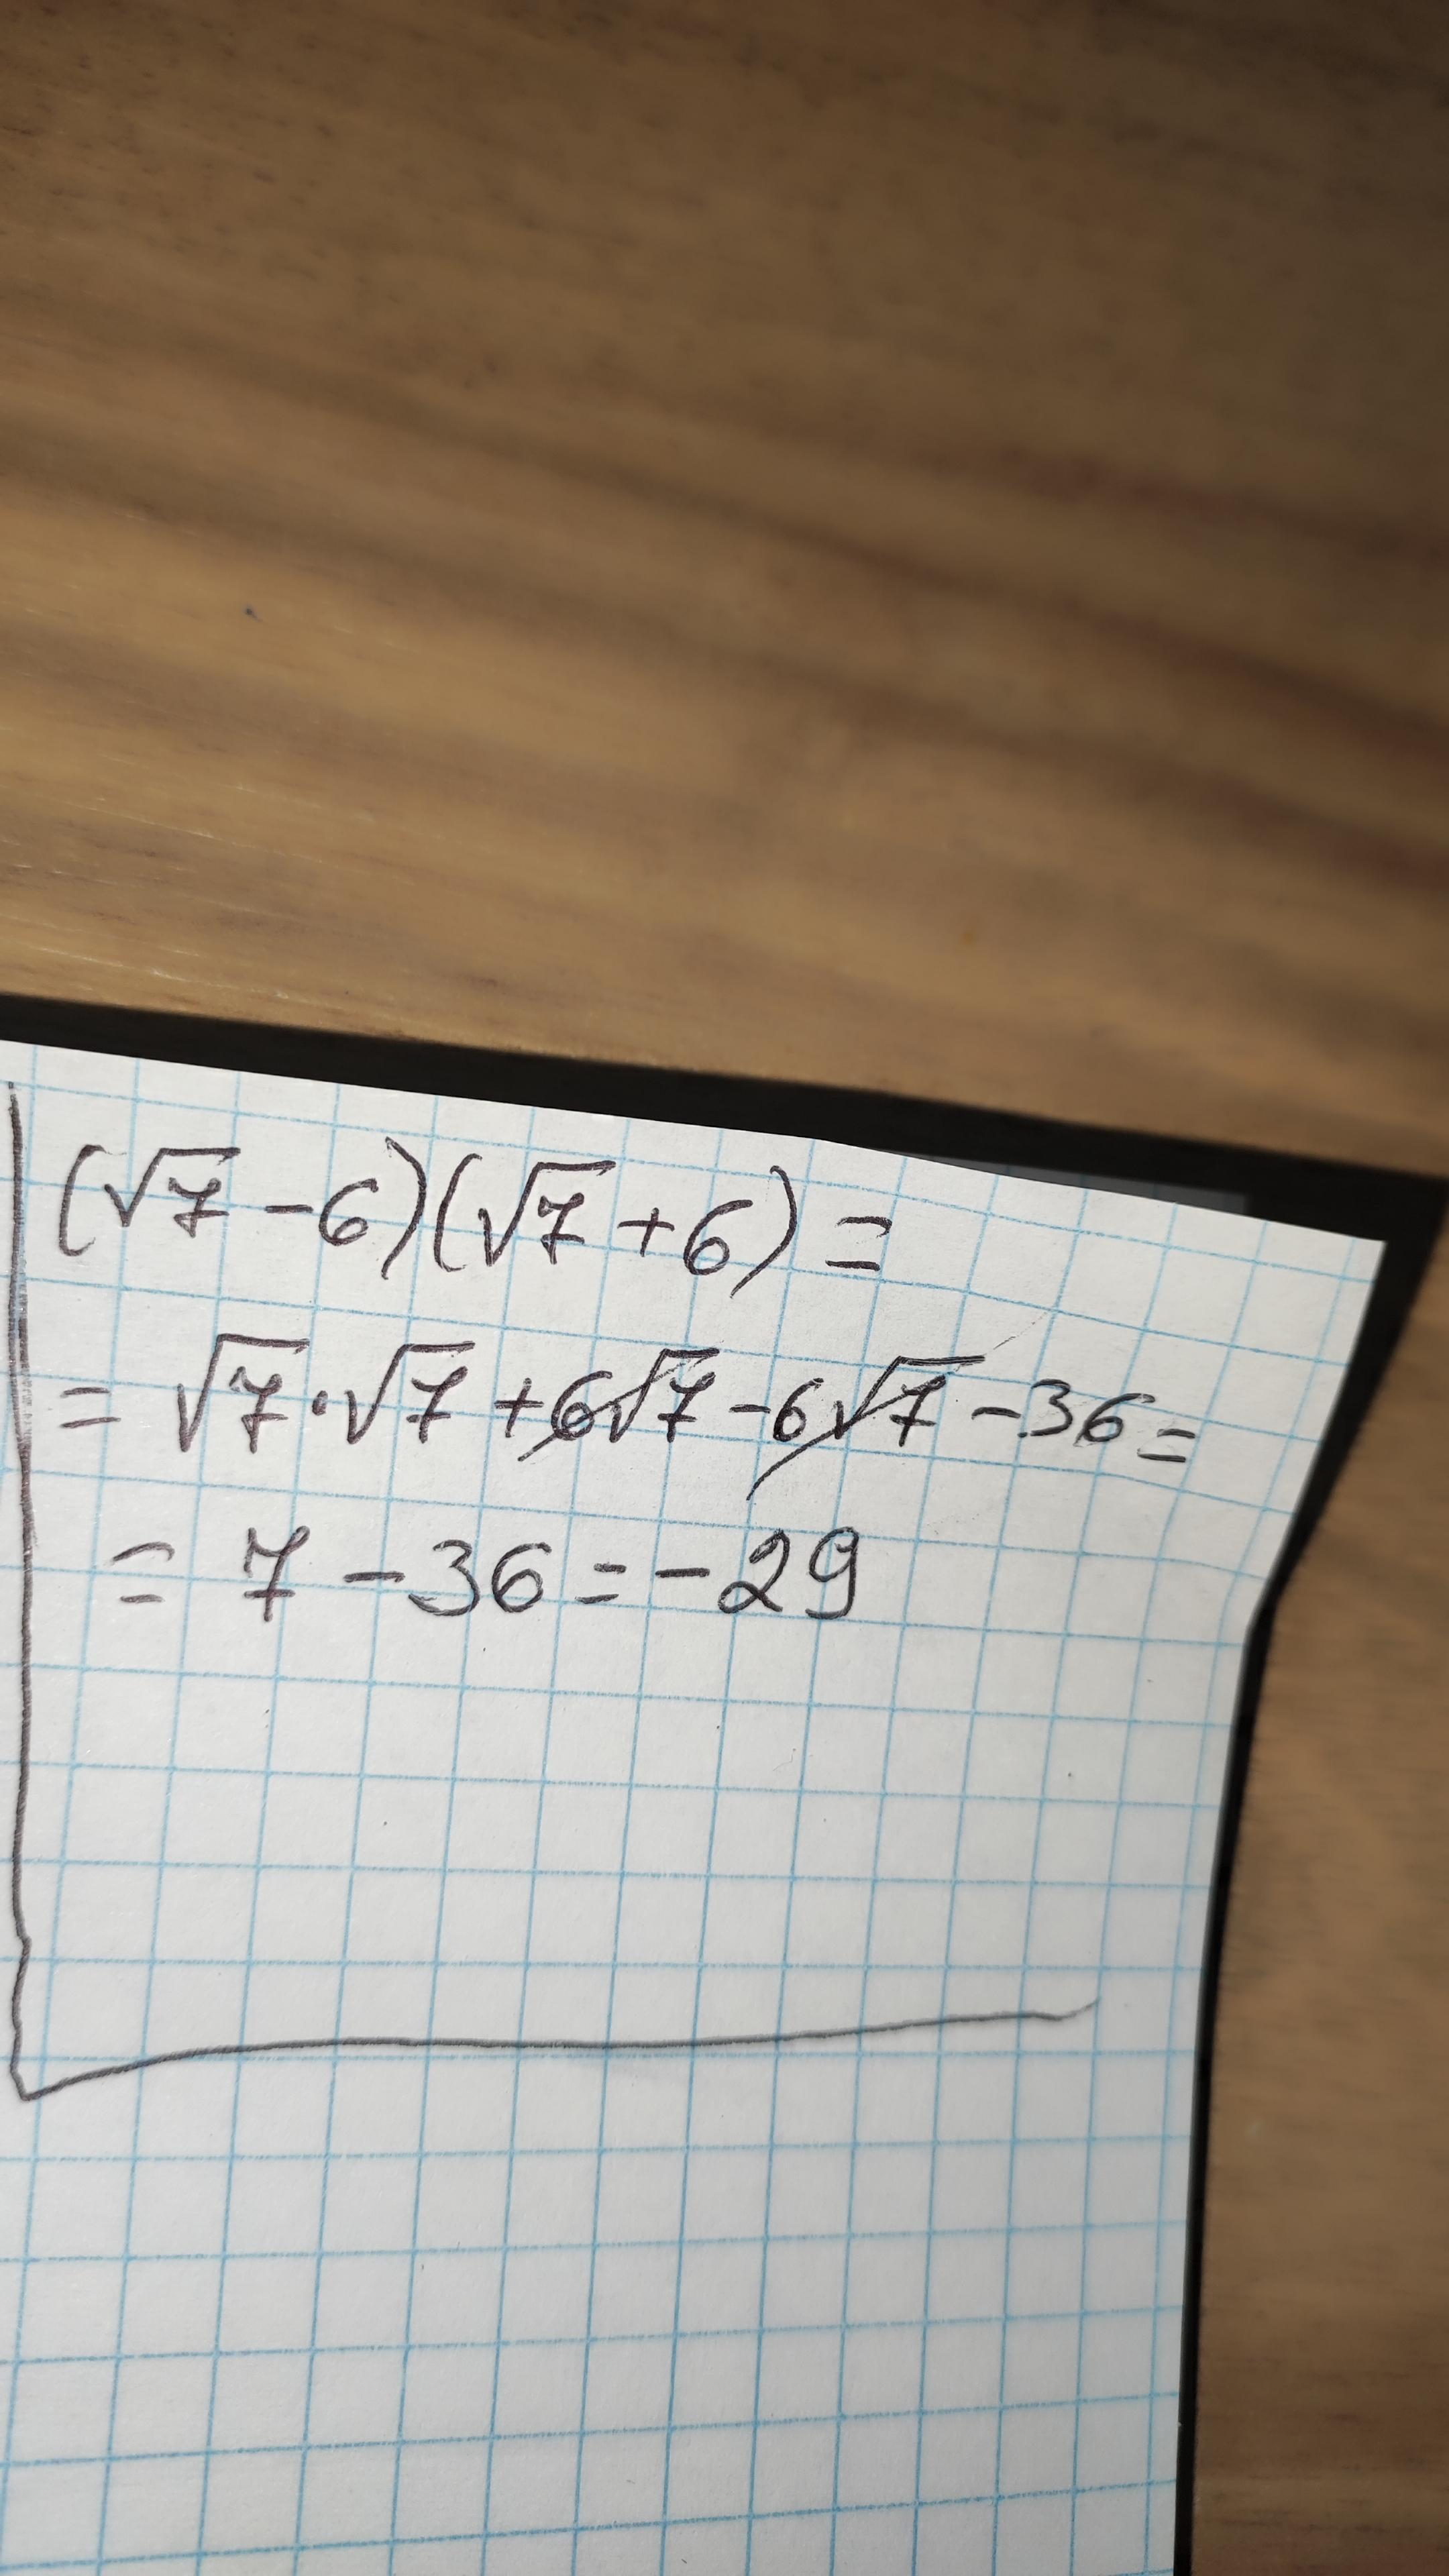 (√7 - 6)(√7 + 6) =
= √7 · √7 + 6√7 - 6√7 - 36 =
= 7 - 36 = - 29